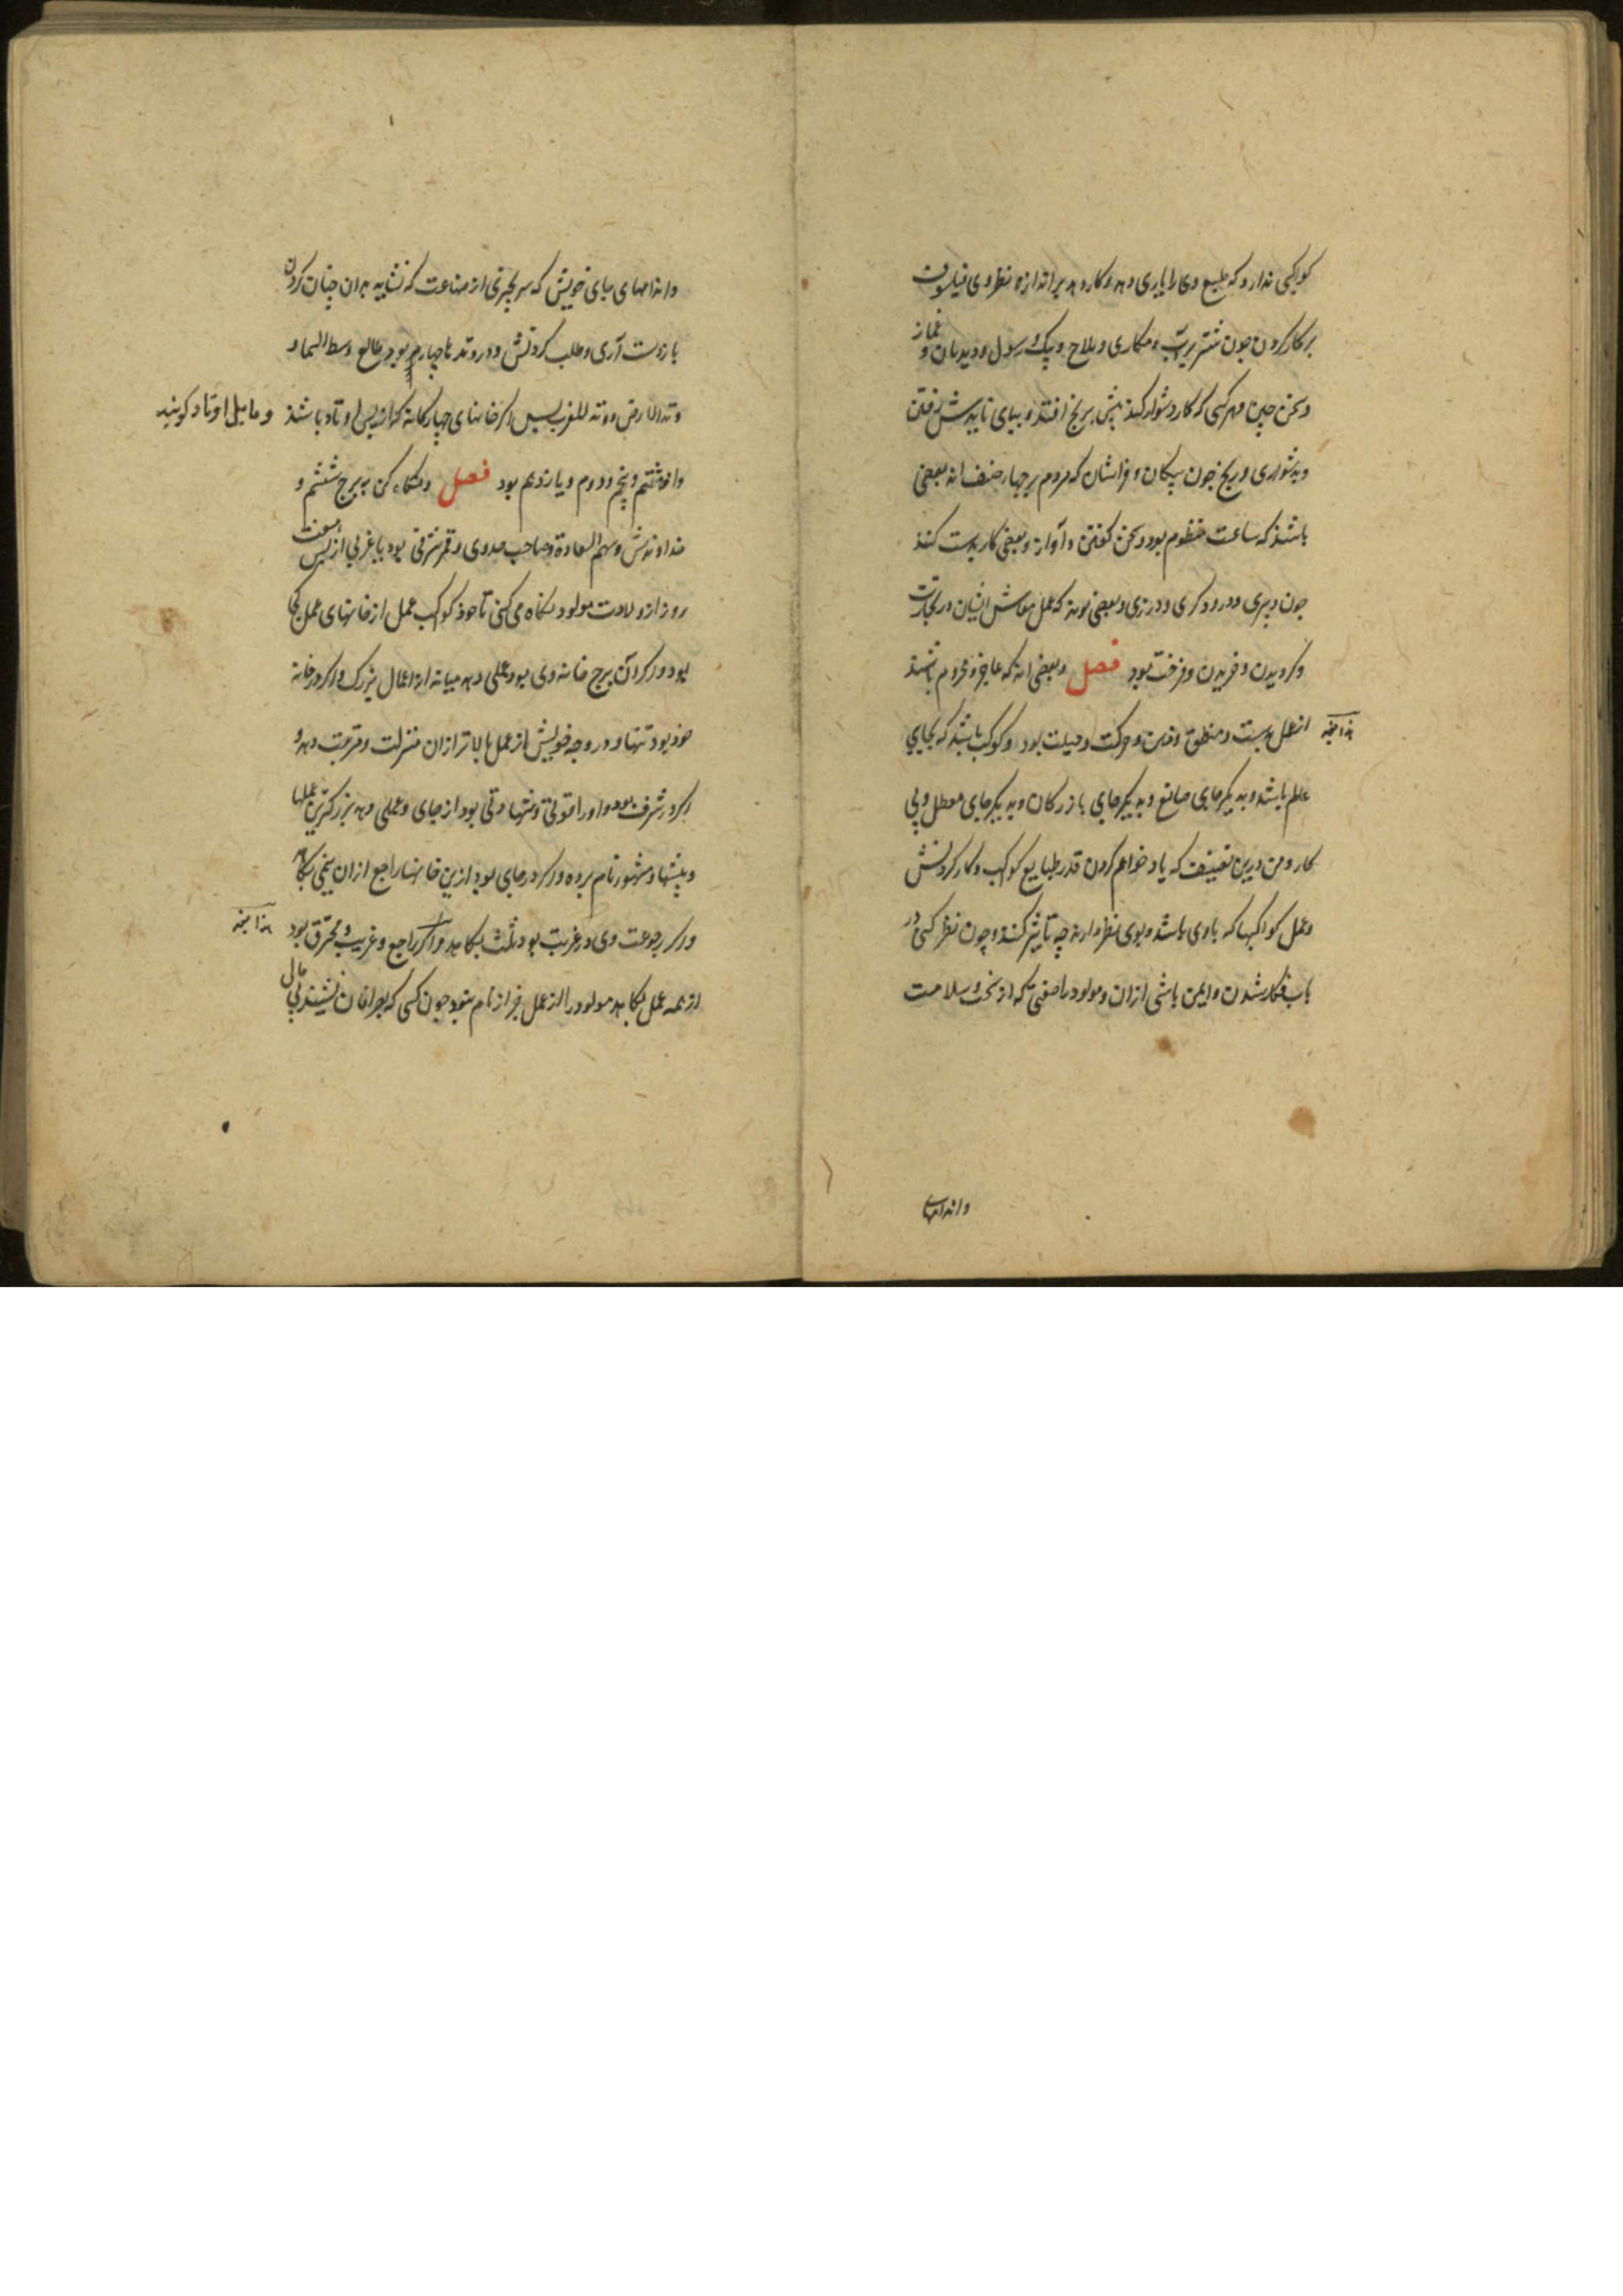 کواکبی ندارد که طبع وی را یاری دهد و کار دهد بر اندازه نظر وی فیلسوف
بر کار کردن چون شتربان و مکاری و ملاح و پیک و رسول و دیدبان و غماز
و سخن چین و هر کسی که کار دشوار کند پیش برنج افتد و بپای بایدش رفتن
و بدشواری و رنج چون پیکان و فراشان که مردم بر چهار صنف اند بعضی
باشند که ساعت منظوم بود و سخن گفتن و آواز و بعضی کار بدست کنند
چون دبیری و درودگری و درزی و بعضی بوند که عمل و معاش ایشان در تجارت
و گردیدن و خریدن و فروخت بود فصل و بعضی اند که عاجز و محروم باشند
از عمل دست و منطق و ذهن و حرکت و حیلت بود و کوکب باشد که بجایی
عالم باشد و به دیگر جای صانع و به دیگر جای بازرگان و به دیگر جای معطل و بی
کار و من درین تصنیف که یاد خواهم کردن قدر طبایع کواکب و کار کردنش
و عمل کواکبها که با وی باشد و بوی نظر دارند چه تاثیر کنند و چون نظر کنی در
باب فکار شدن و ایمن باشی از آن و مولود را صفتی که از نحس و سلامت
و اندامهای
و اندامهای بپای خویش که سر بچیزی از صناعت که نشاید بدان چنان کردن
باز دست آری و طلب کردنش و در وتدها چهارم بود طالع وسط السما و
وتد الارض و وتد المغرب پس اگر خانهای چهارگانه که از پس اوتاد باشند و مایل اوتاد گویند
و آن هشتم و پنجم و دوم و یازدهم بود فصل و نگاه کن به برج ششم و
خداوندش و سهم السعادة و صاحب حدوی و قمر شرقی بود یا غربی از پس هفت
روز از ولادت مولود نگاه می کنی تا خود کوکب عمل از خانهای عمل کجا
بود و اگر آن برج خانه وی بود عملی دهد میانه از اعمال بزرگ و اگر در خانه
خود بود تنها و در وجه خویش از عمل بالاتر از آن منزلت و مرتبت دهد و
اگر در شرف بود و او را قوتی و شهادتی بود از جای و عملی دهد بزرگترین عملها
و پیشها و مشهور نام برده و اگر در جایی بود ازین خانها راجع از آن نیمی بکاهد
و اگر رجوعت وی در غربت بود ثلث بکاهد و اگر راجع و غریب و محترق بود
از همه عمل بکاهد مولود را از عمل جز از نام نبود چون کسی که بصرافان نشیند بی مال